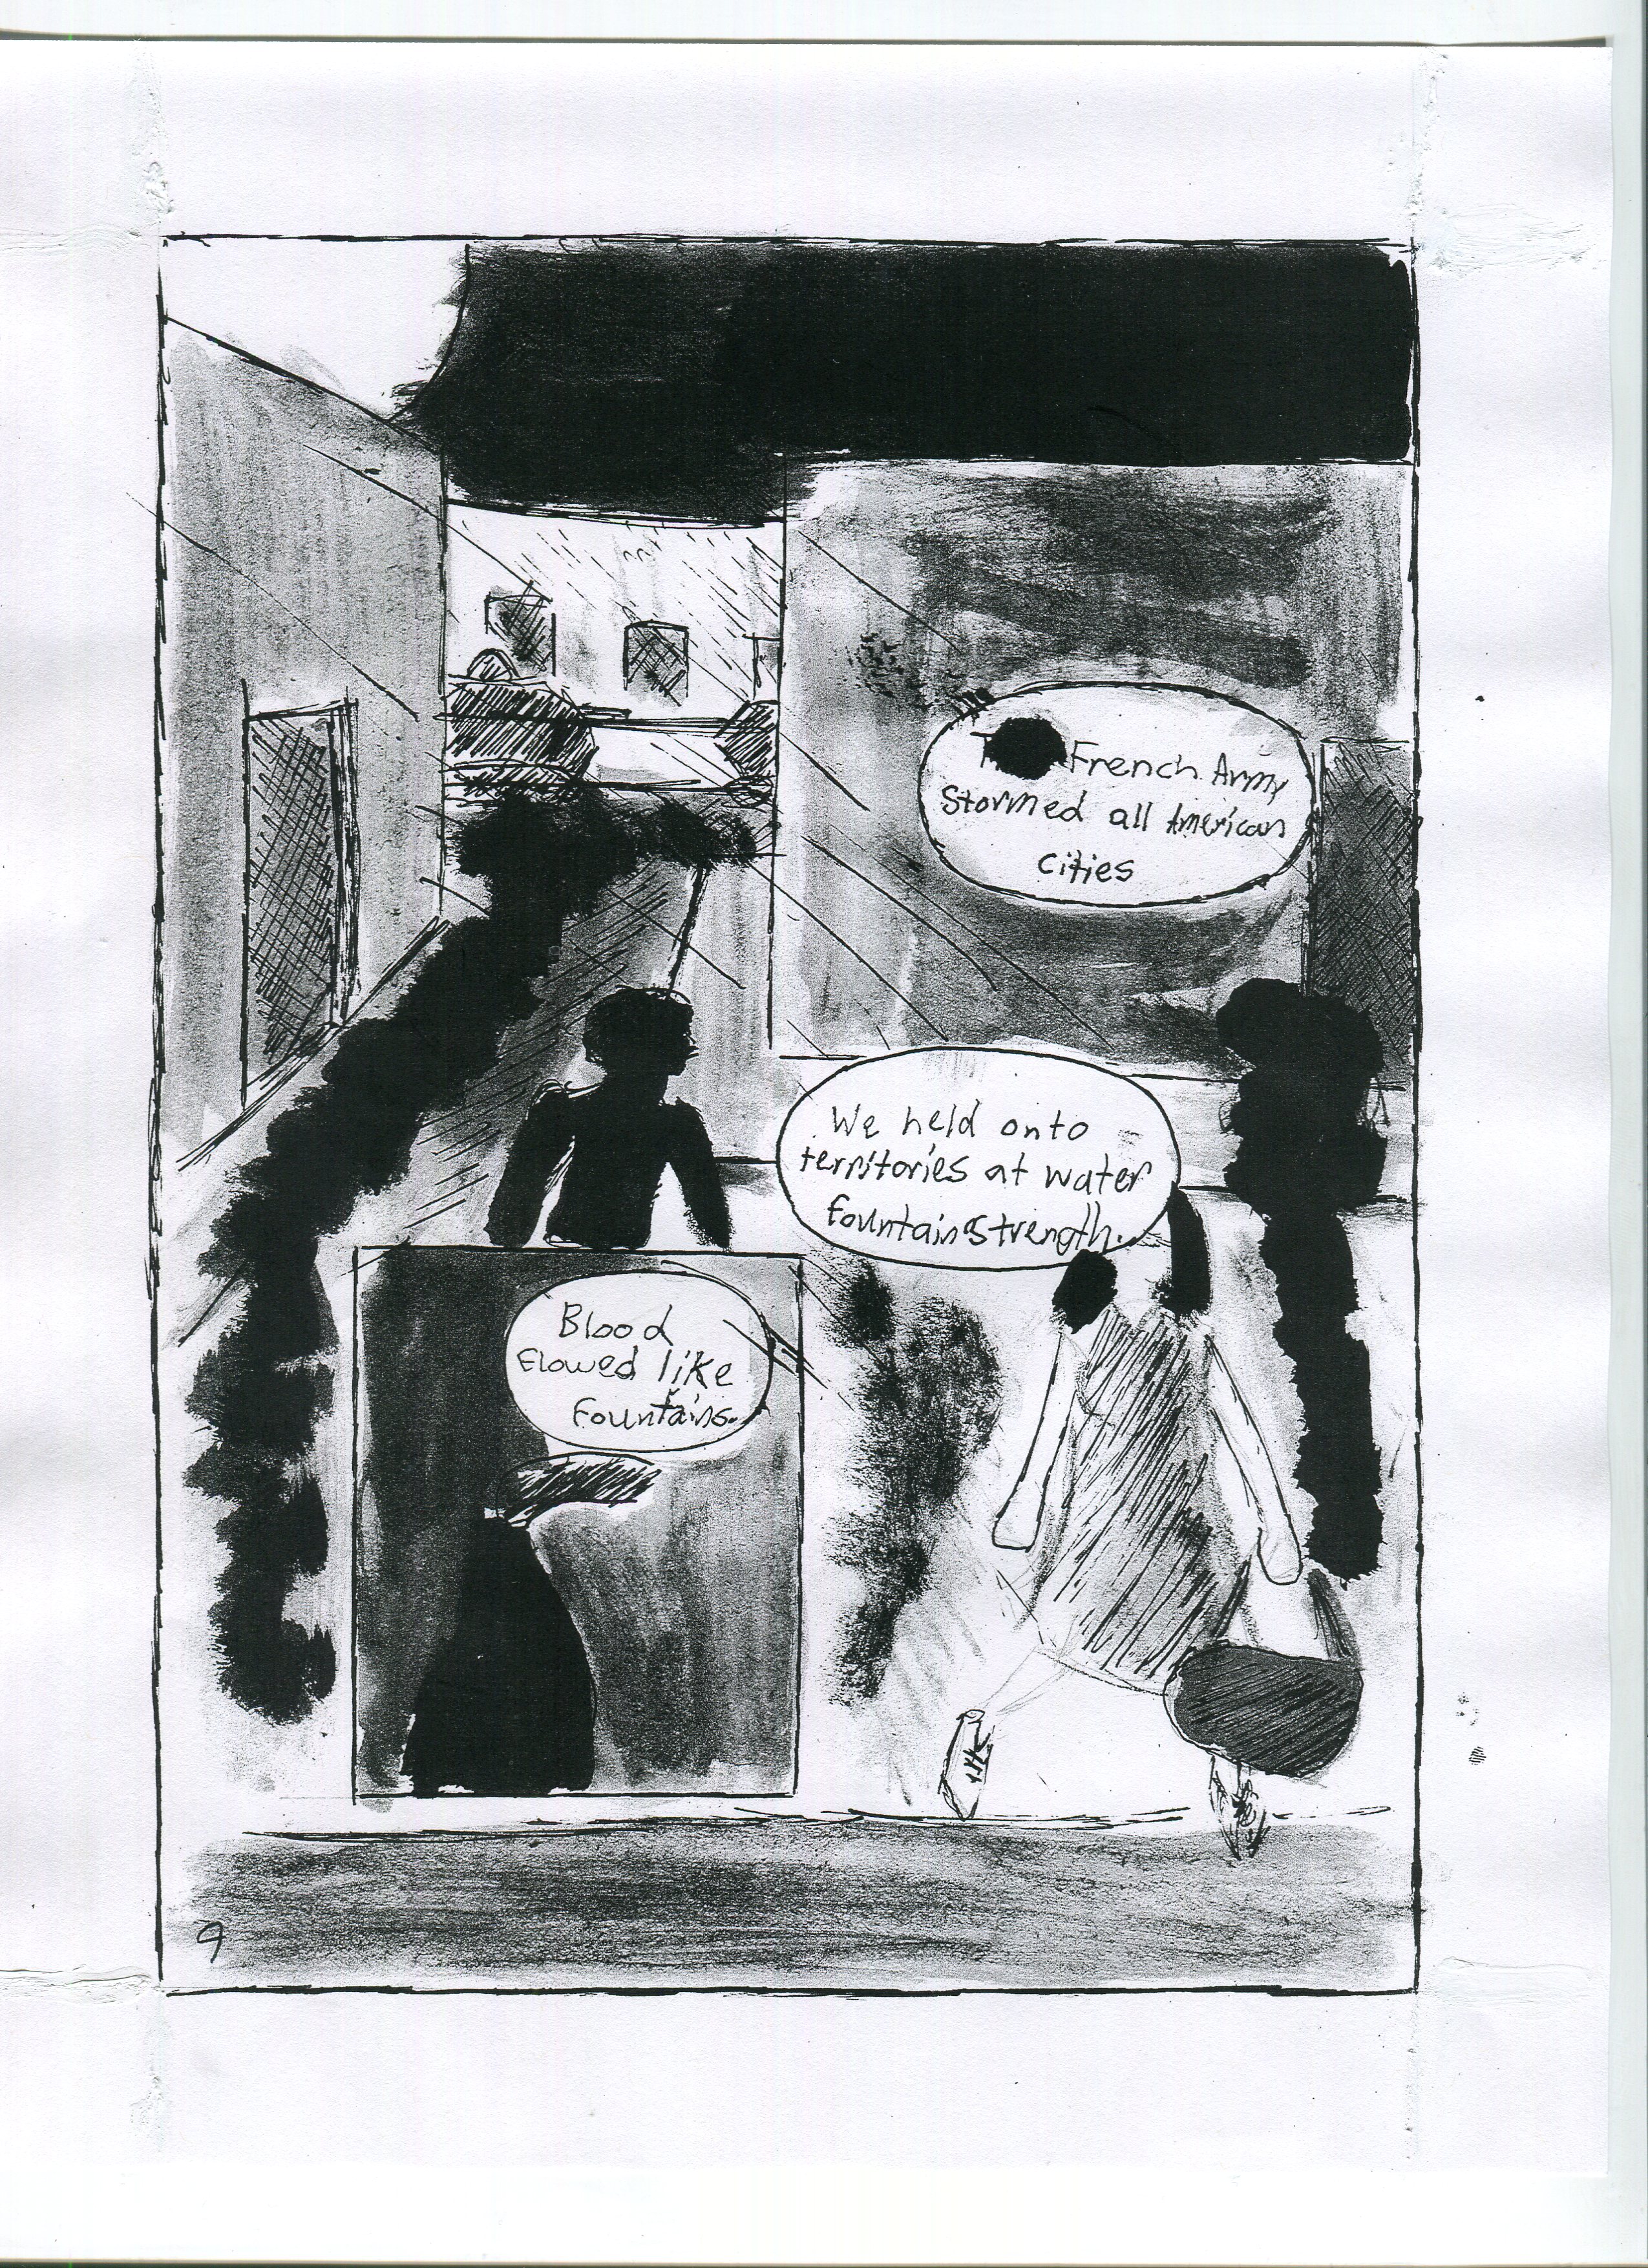 French Army
Stormed all American
Cities
We held onto
territories at water
fountain strength.
Blood
Flowed like
Fountains.
9